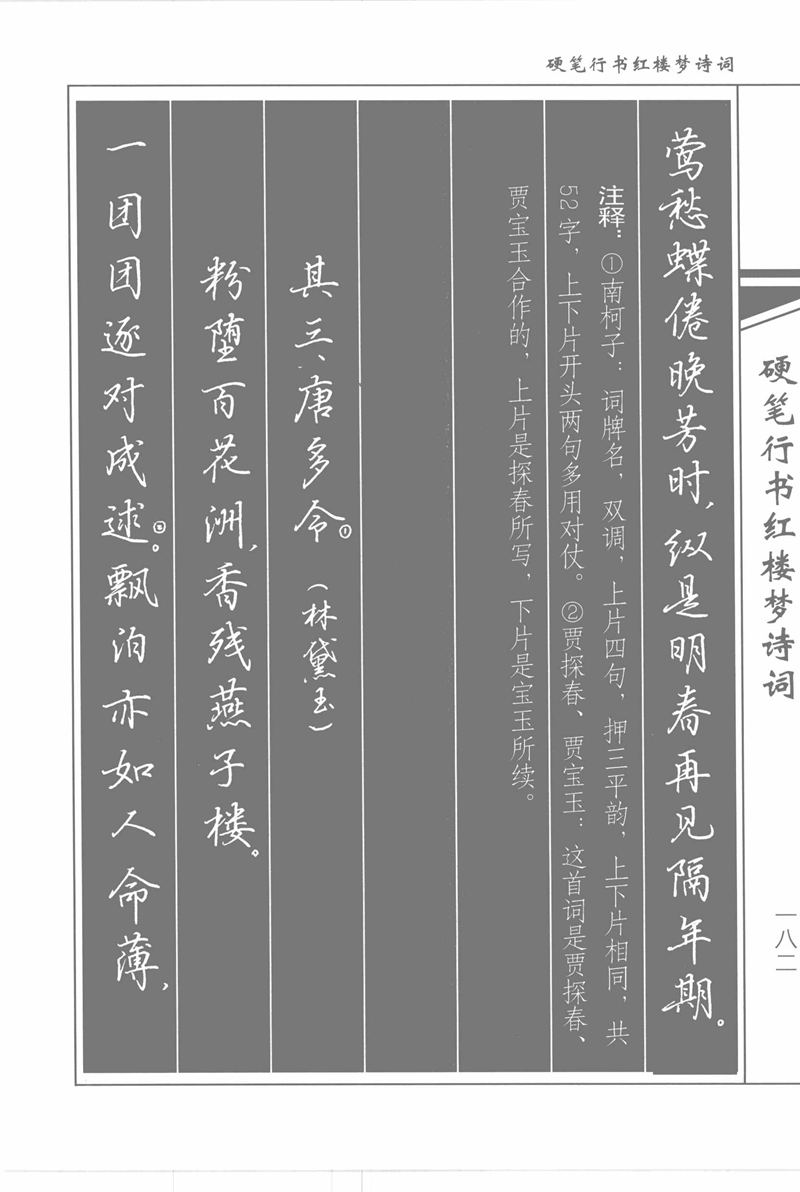 硬笔行书红楼梦诗词
莺愁蝶倦晚芳时，纵是明春再见隔年期。
注释：①南柯子：词牌名，双调，上片四句，押三平韵，上下片相同，共
52字，上下片开头两句多用对仗。②贾探春、贾宝玉：这首词是贾探春、
贾宝玉合作的，上片是探春所写，下片是宝玉所续。
其三、唐多令。①（林黛玉）
粉堕百花洲，香残燕子楼。
一团团逐对成逑。②飘泊亦如人命薄，
硬笔行书红楼梦诗词
一八二